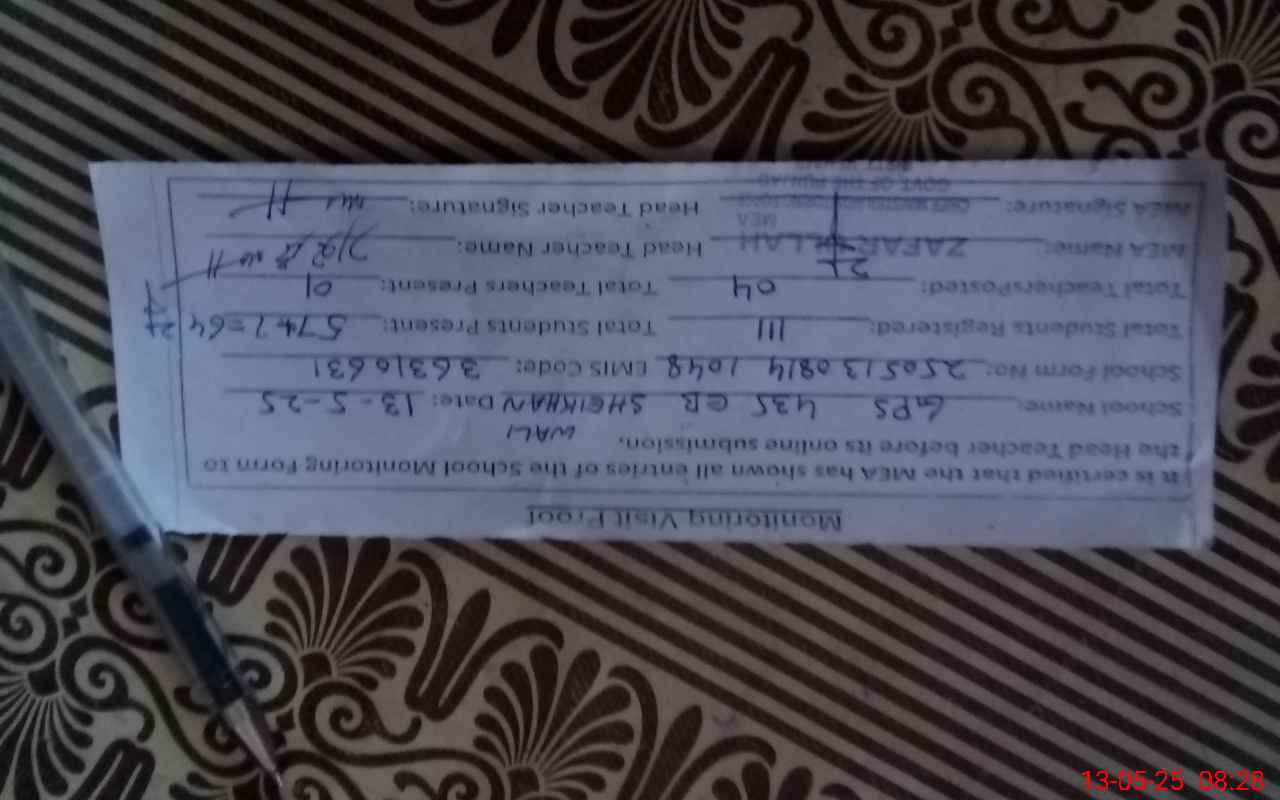 Monitoring Visit Proof
It is certified that the MEA has shown all entries of the School Monitoring Form to
the Head Teacher before its online submission.
WALI
School Name: GPS 435 EB SHEIKHAN Date: 13-5-25
School Form No: 250513 0814 1048 EMIS Code: 36310631
Total Students Registered: 111 Total Students Present: 57+7=64
Total TeachersPosted: 04 Total Teachers Present: 01
MEA Name: ZAFAR ULLAH Head Teacher Name:
MEA
MEA Signature: Head Teacher Signature:
GOVT OF THE PUNJAB
13-05-25 08:28